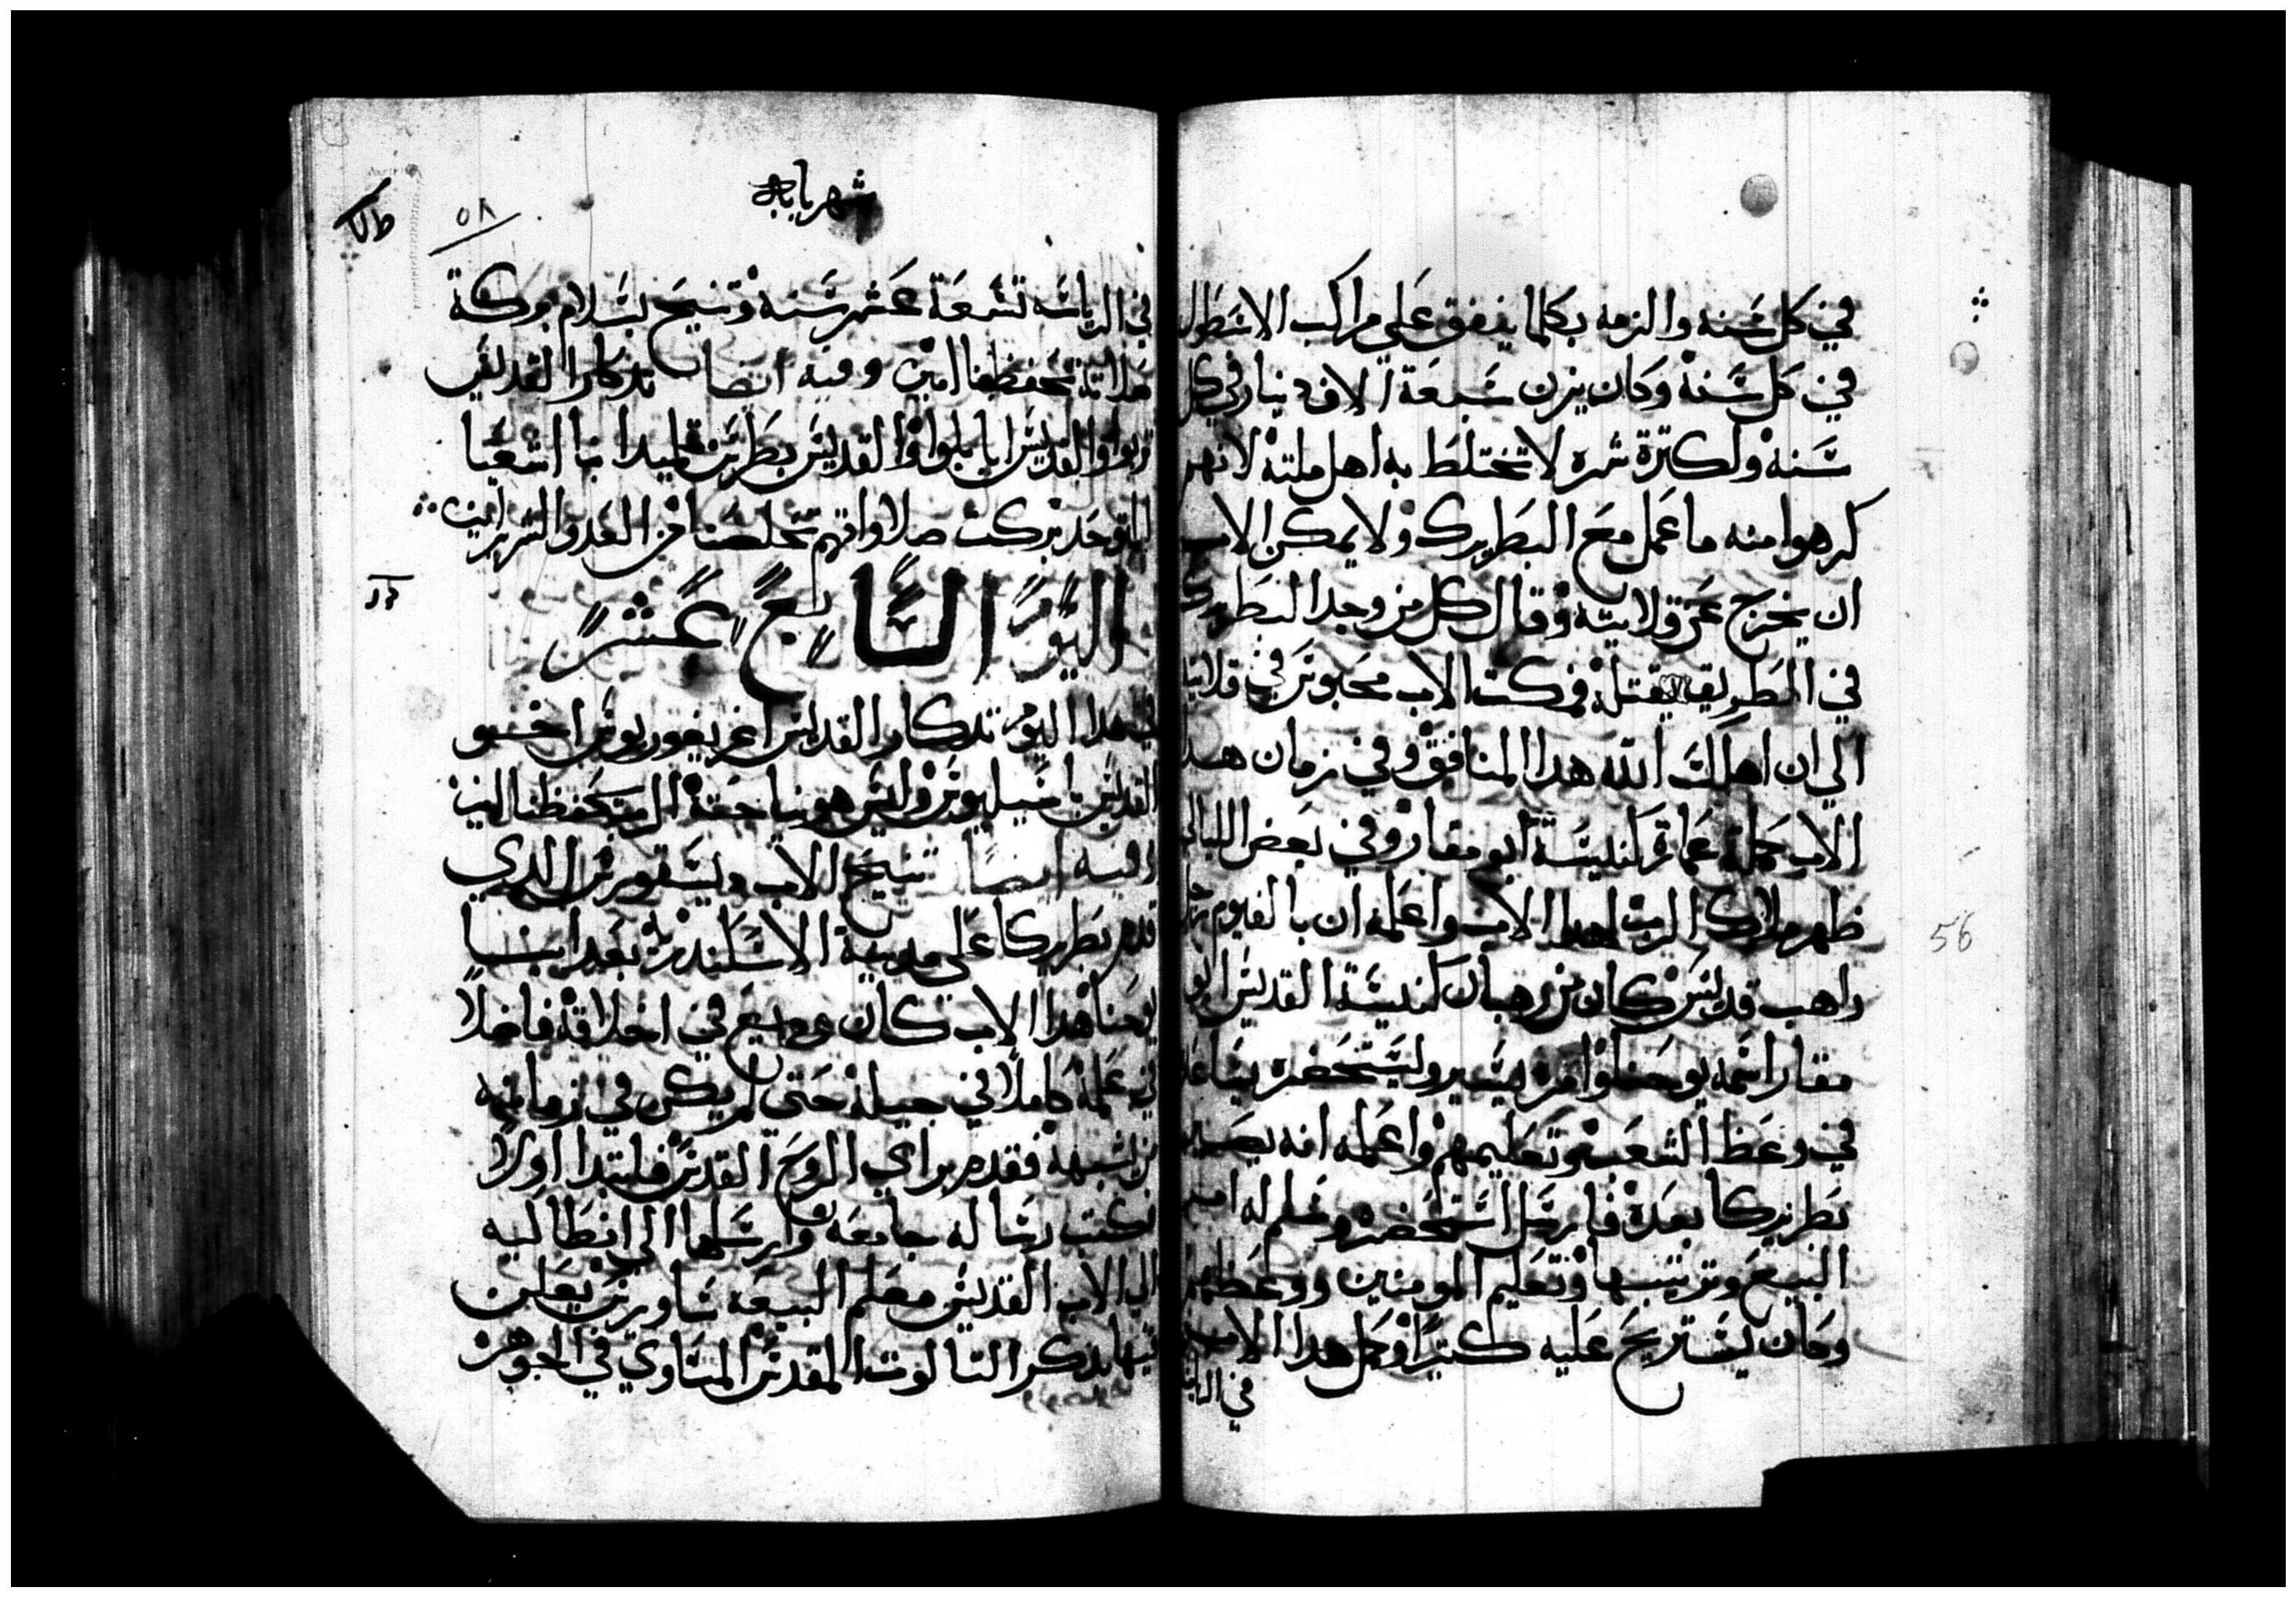 في كل سنه والزمه بكلما ينفق علي مراكب الاسطول
في كل سنة وكان يزن سبعة الاف دينار في كل
سنه ولكترة شره لا تختلط به اهل ملته لانهم
كرهوا منه ما عمل مع البطريرك ولا يمكن الاب
ان يخرج عن قلايته وقال كل من وجد البطريرك
في الطريق يقتله فمكت الاب محبوس في قلايته
الي ان اهلك الله هدا المنافق وفي زمان هدا
الاب جملة عمارة كنيسة ابو مقار وفي بعض الليالي
ظهر ملاك الرب لهدا الاب واعلمه ان بالفيوم
راهب قديس كان من رهبان كنيسة القديس ابو
مقار اسمه يوحنا وامره يسير وليستحضره يساعده
في وعظ الشعب وتعليمهم واعلمه انه يصير
بطريركا بعده فارسل استحضره وسلم له امر
البيع وترتيبها وتعليم المومنين ووعظهم
وكان يستريح عليه كتيرا وكمل هدا الاب
في الرياسه
شهر بابه
٥٨
في الرياسه تسعة عشر سنه وتنيح بسلام بركة
صلاته تحفظنا امين وفيه ايضا تدكار القديس
والقديس ابا بلوا والقديس بطرس تلميد انبا اشعيا
المتوحد بركت صلاواتهم تخلصنا من العدو الشرير امين
اليوم التالت عشر
في هدا اليوم تدكار القديس اغريغوريوس اخو
القديس باسيليوس وليس هو نياحته الرب يحفظنا امين
وفيه ايضا تنيح الاب ديسقورس الدي
قدم بطريركا علي مدينة الاسكندرية بعد انبا
يوحنا هدا الاب كان وديع في اخلاقه فاضلا
في علمه كاملا في جيله حتي لم يكن في زمانه
من يشبهه فقدم براي الروح القدس فابتدا اولا
بكتب رساله جامعه وارسلها الي انطاكيه
الي الاب القديس معلم البيعه ساويرس يعلن
فيها بدكر التالوت المقدس المتساوي في الجوهر
56